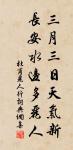 三月三日天氣新
長安水邊多麗人
杜甫麗人行詩